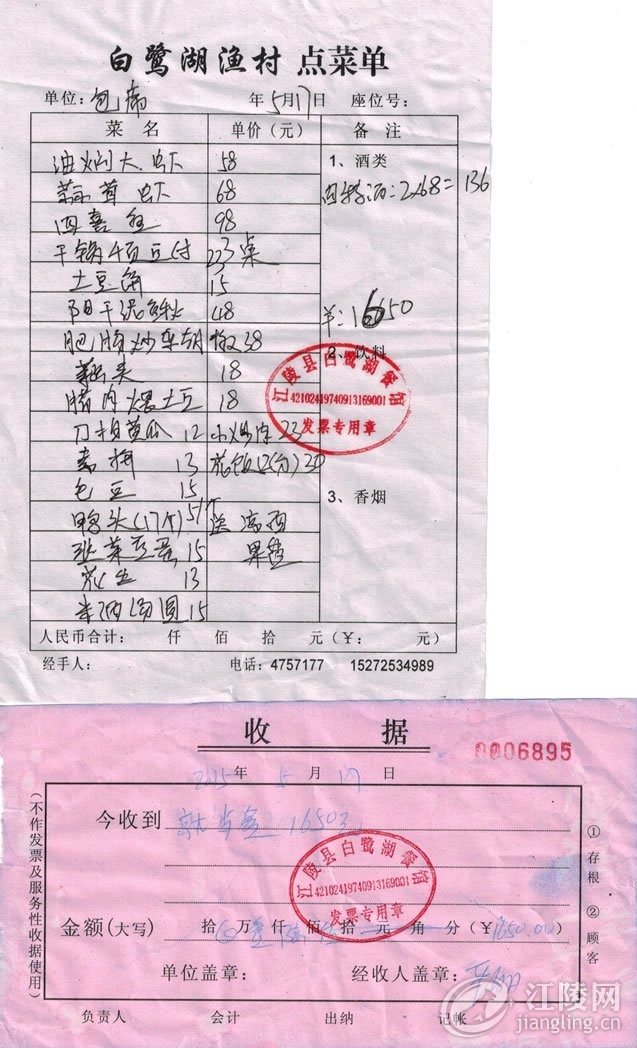 白鹭湖渔村 点菜单
单位:包席 年5月17日 座位号:
菜 名 单价(元) 备 注
油焖大虾 58 1、酒类
蒜茸虾 68 :2×68=136
四喜 98
干锅千页豆付 23 桌
土豆 15
阳干泥鳅 48 羊:1650
肥肠炒 38
2、饮料
头 18
腊肉煨土豆 18
刀拍黄瓜 12 小炒 23
13 20
包豆 15 3、香烟
鸭头(17个)51个 送
韭菜豆 15 果盘
花生 13
米酒汤圆 15
人民币合计: 仟 佰 拾 元(¥: 元)
经手人: 电话:4757177 15272534989
江陵县白鹭湖餐馆
42102419740913169001
发票专用章
收 据
0006895
2015年 5月 17日
今收到 1650
江陵县白鹭湖餐馆
42102419740913169001
发票专用章
金额(大写) 拾 万 仟 佰 拾 元 角 分(¥1650.00)
单位盖章: 经收人盖章:
(不作发票及服务性收据使用)
①存根 ②顾客
负责人 会计 出纳 记帐
江陵网
jiangling.cn